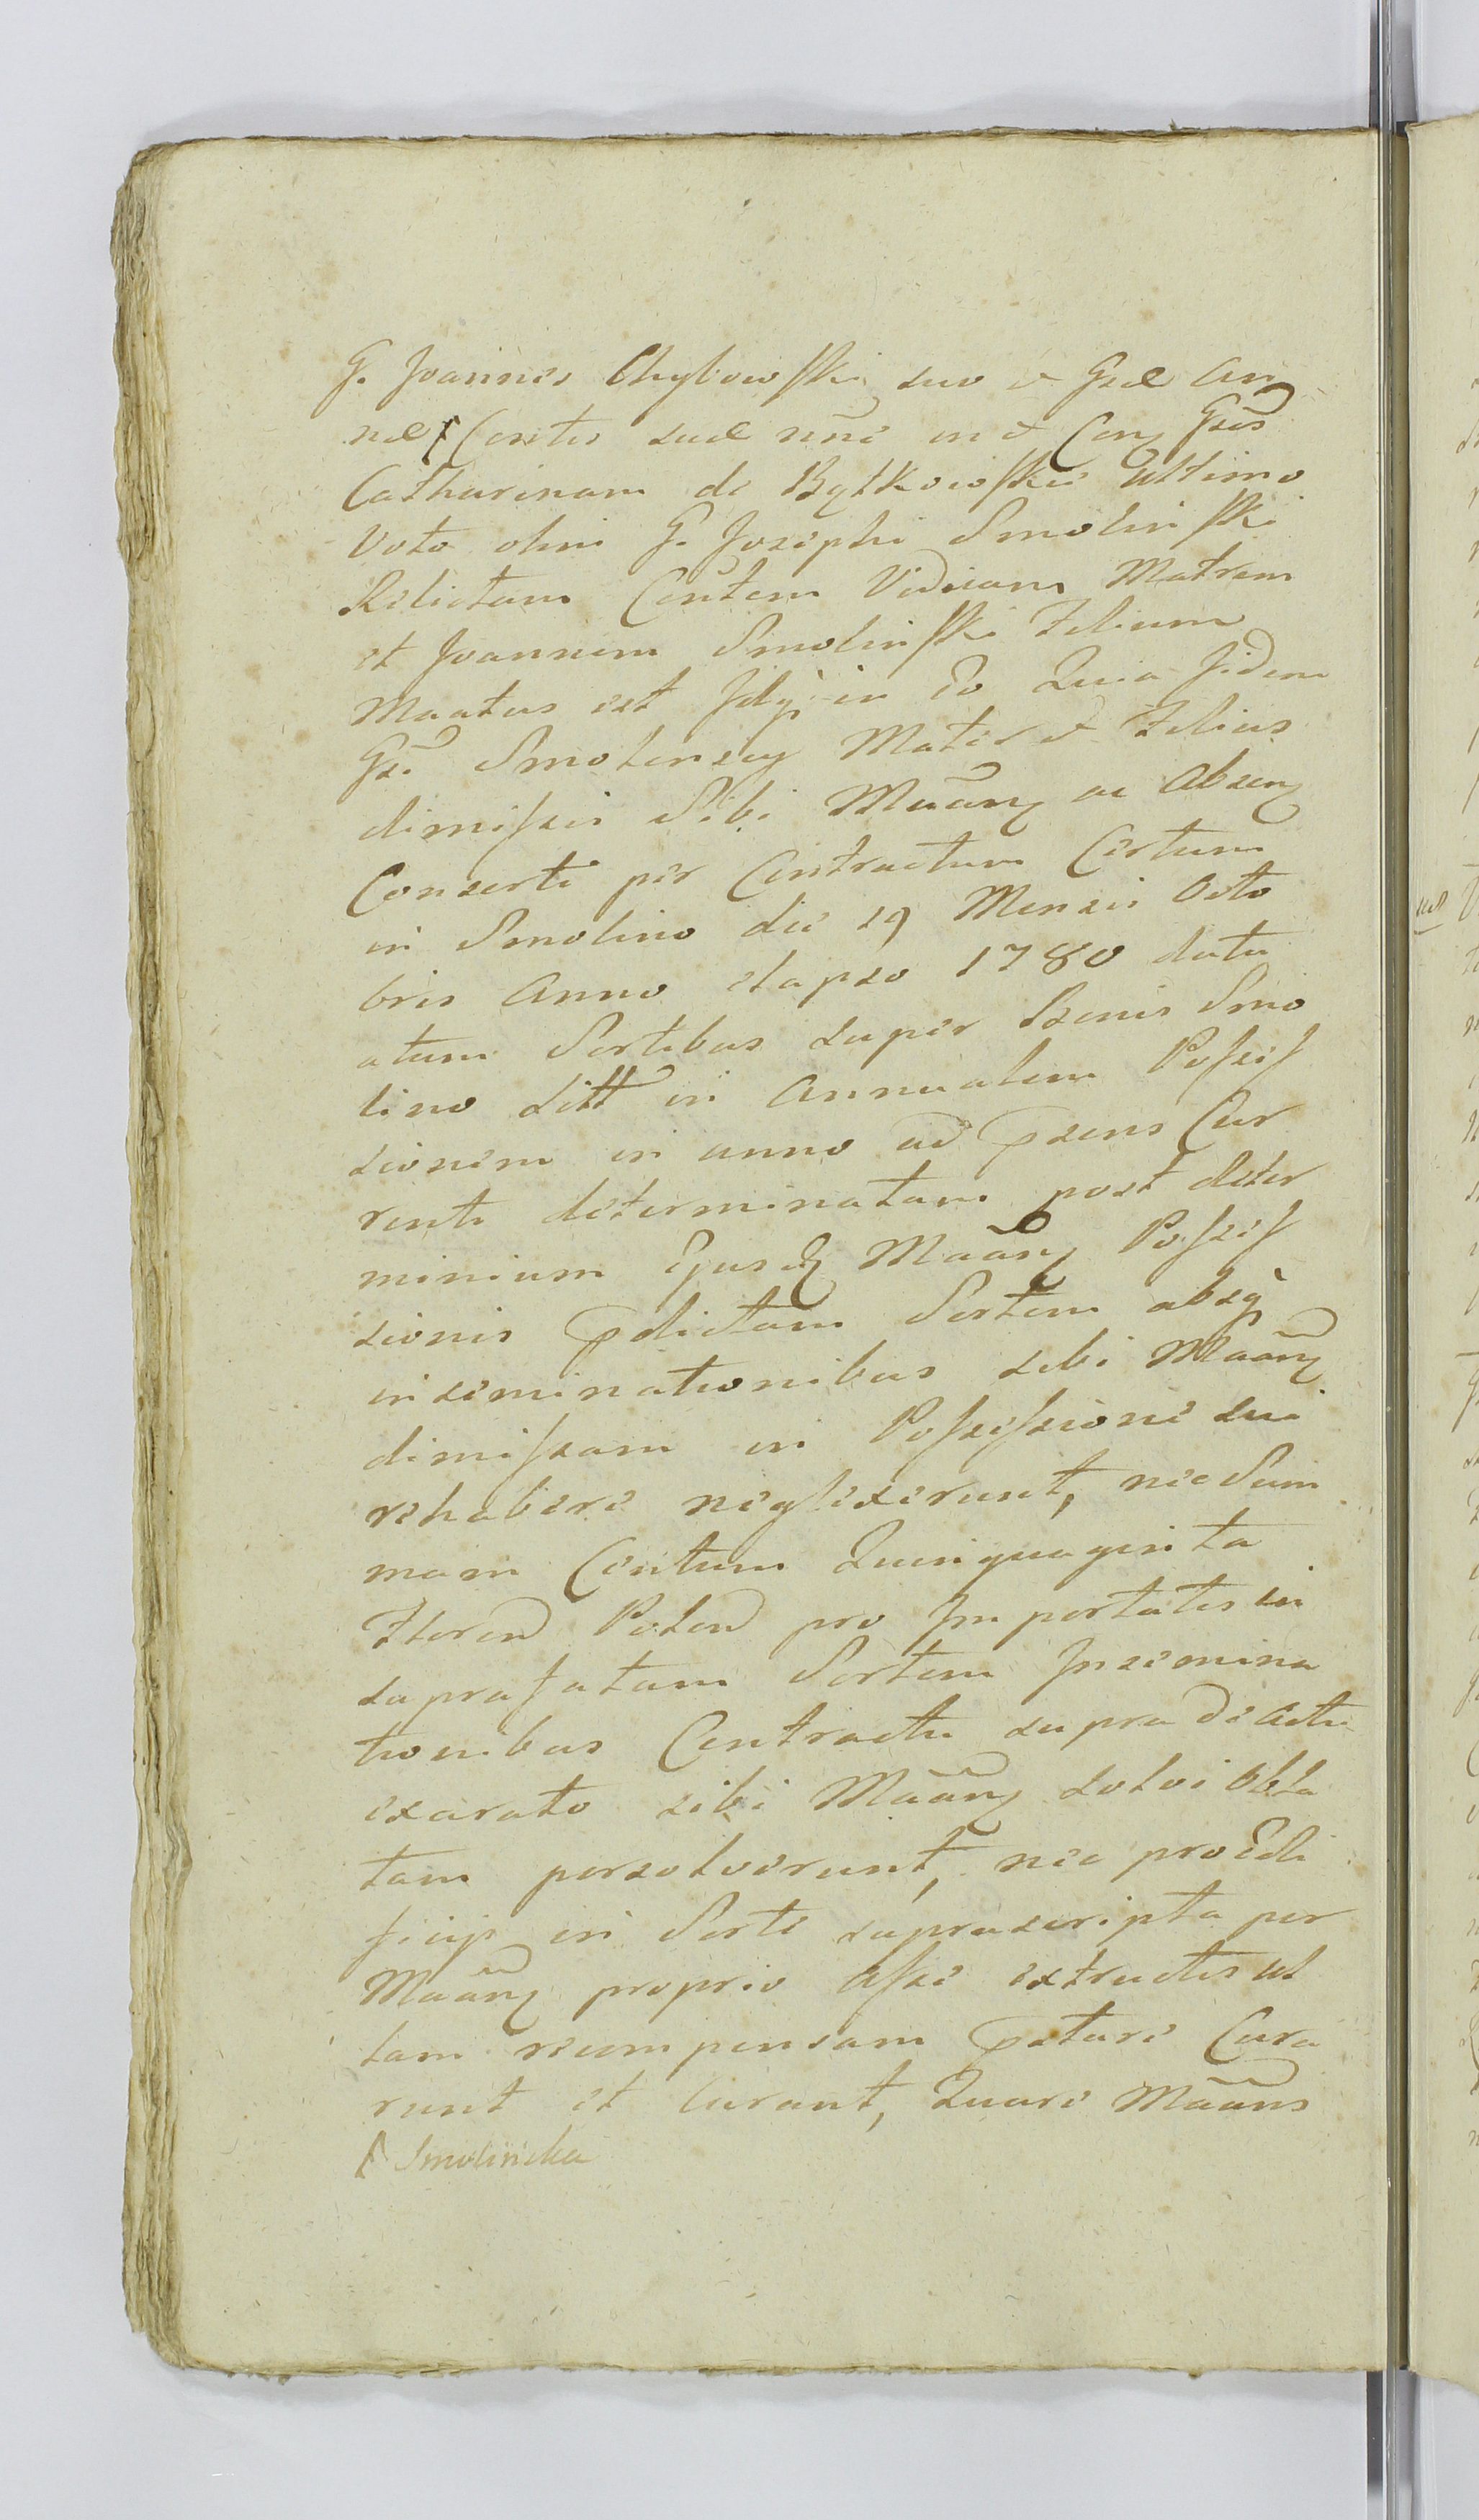 G. Joannes Chybowski suo et Gsae An
nae Cortis suae nnē in et Con Gsās
Catharinam de Bytkowskie Ultimo
Voto olim G. Josephi Smoliński
Relictam Contem Viduam Matrem
et Joannem Smoliński Filium
Maatus est Idq in Eo Quia Iidem
Gsi Smolinscy Mater et Filius
dimissis Sibi Maan ac Absen
Conserti per Contractum Certum
in Smolino die 29 Mensis Octo
bris Anno elapso 1780 datu
atum Sortibus super Bonis Smo
lino Litt in Annualem Posses
sionem in anno ad psens Cur
renti determinatam post deter
minium Ejusd Maan Posses
sionis pdictam Sortem absq
inseminationibus sibi Maan
dimissam in Possessione sui
rehabere neglexerunt, nec Sum
mam Centum Quinquaginta
Floren Polon pro Importatis in
suprafatam Sortem Insemina
tionibus Contractu supra de Actu
exarato sibi Maan solvi obla
tam persolverunt, nec pro Edi
ficijs in Sorte suprascripta per
Maan proprio Asse extructis ul
lam recompensam pstare Cura
runt et Curant, Quare Maans
Smolińska